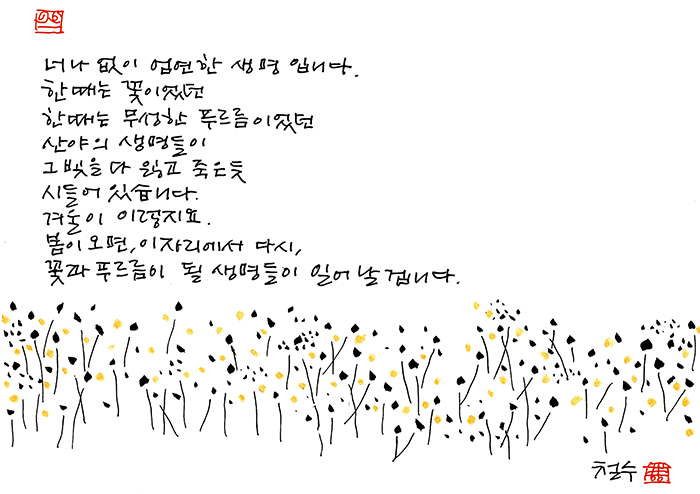 너나 없이 엄연한 생명 입니다.
한때는 꽃이었던
한때는 무성한 푸르름이었던
산야의 생명들이
그 빛을 다 잃고 죽은듯
시들어 있습니다.
겨울이 이렇지요.
봄이 오면, 이자리에서 다시,
꽃과 푸르름이 될 생명들이 일어 날 겁니다.
철수